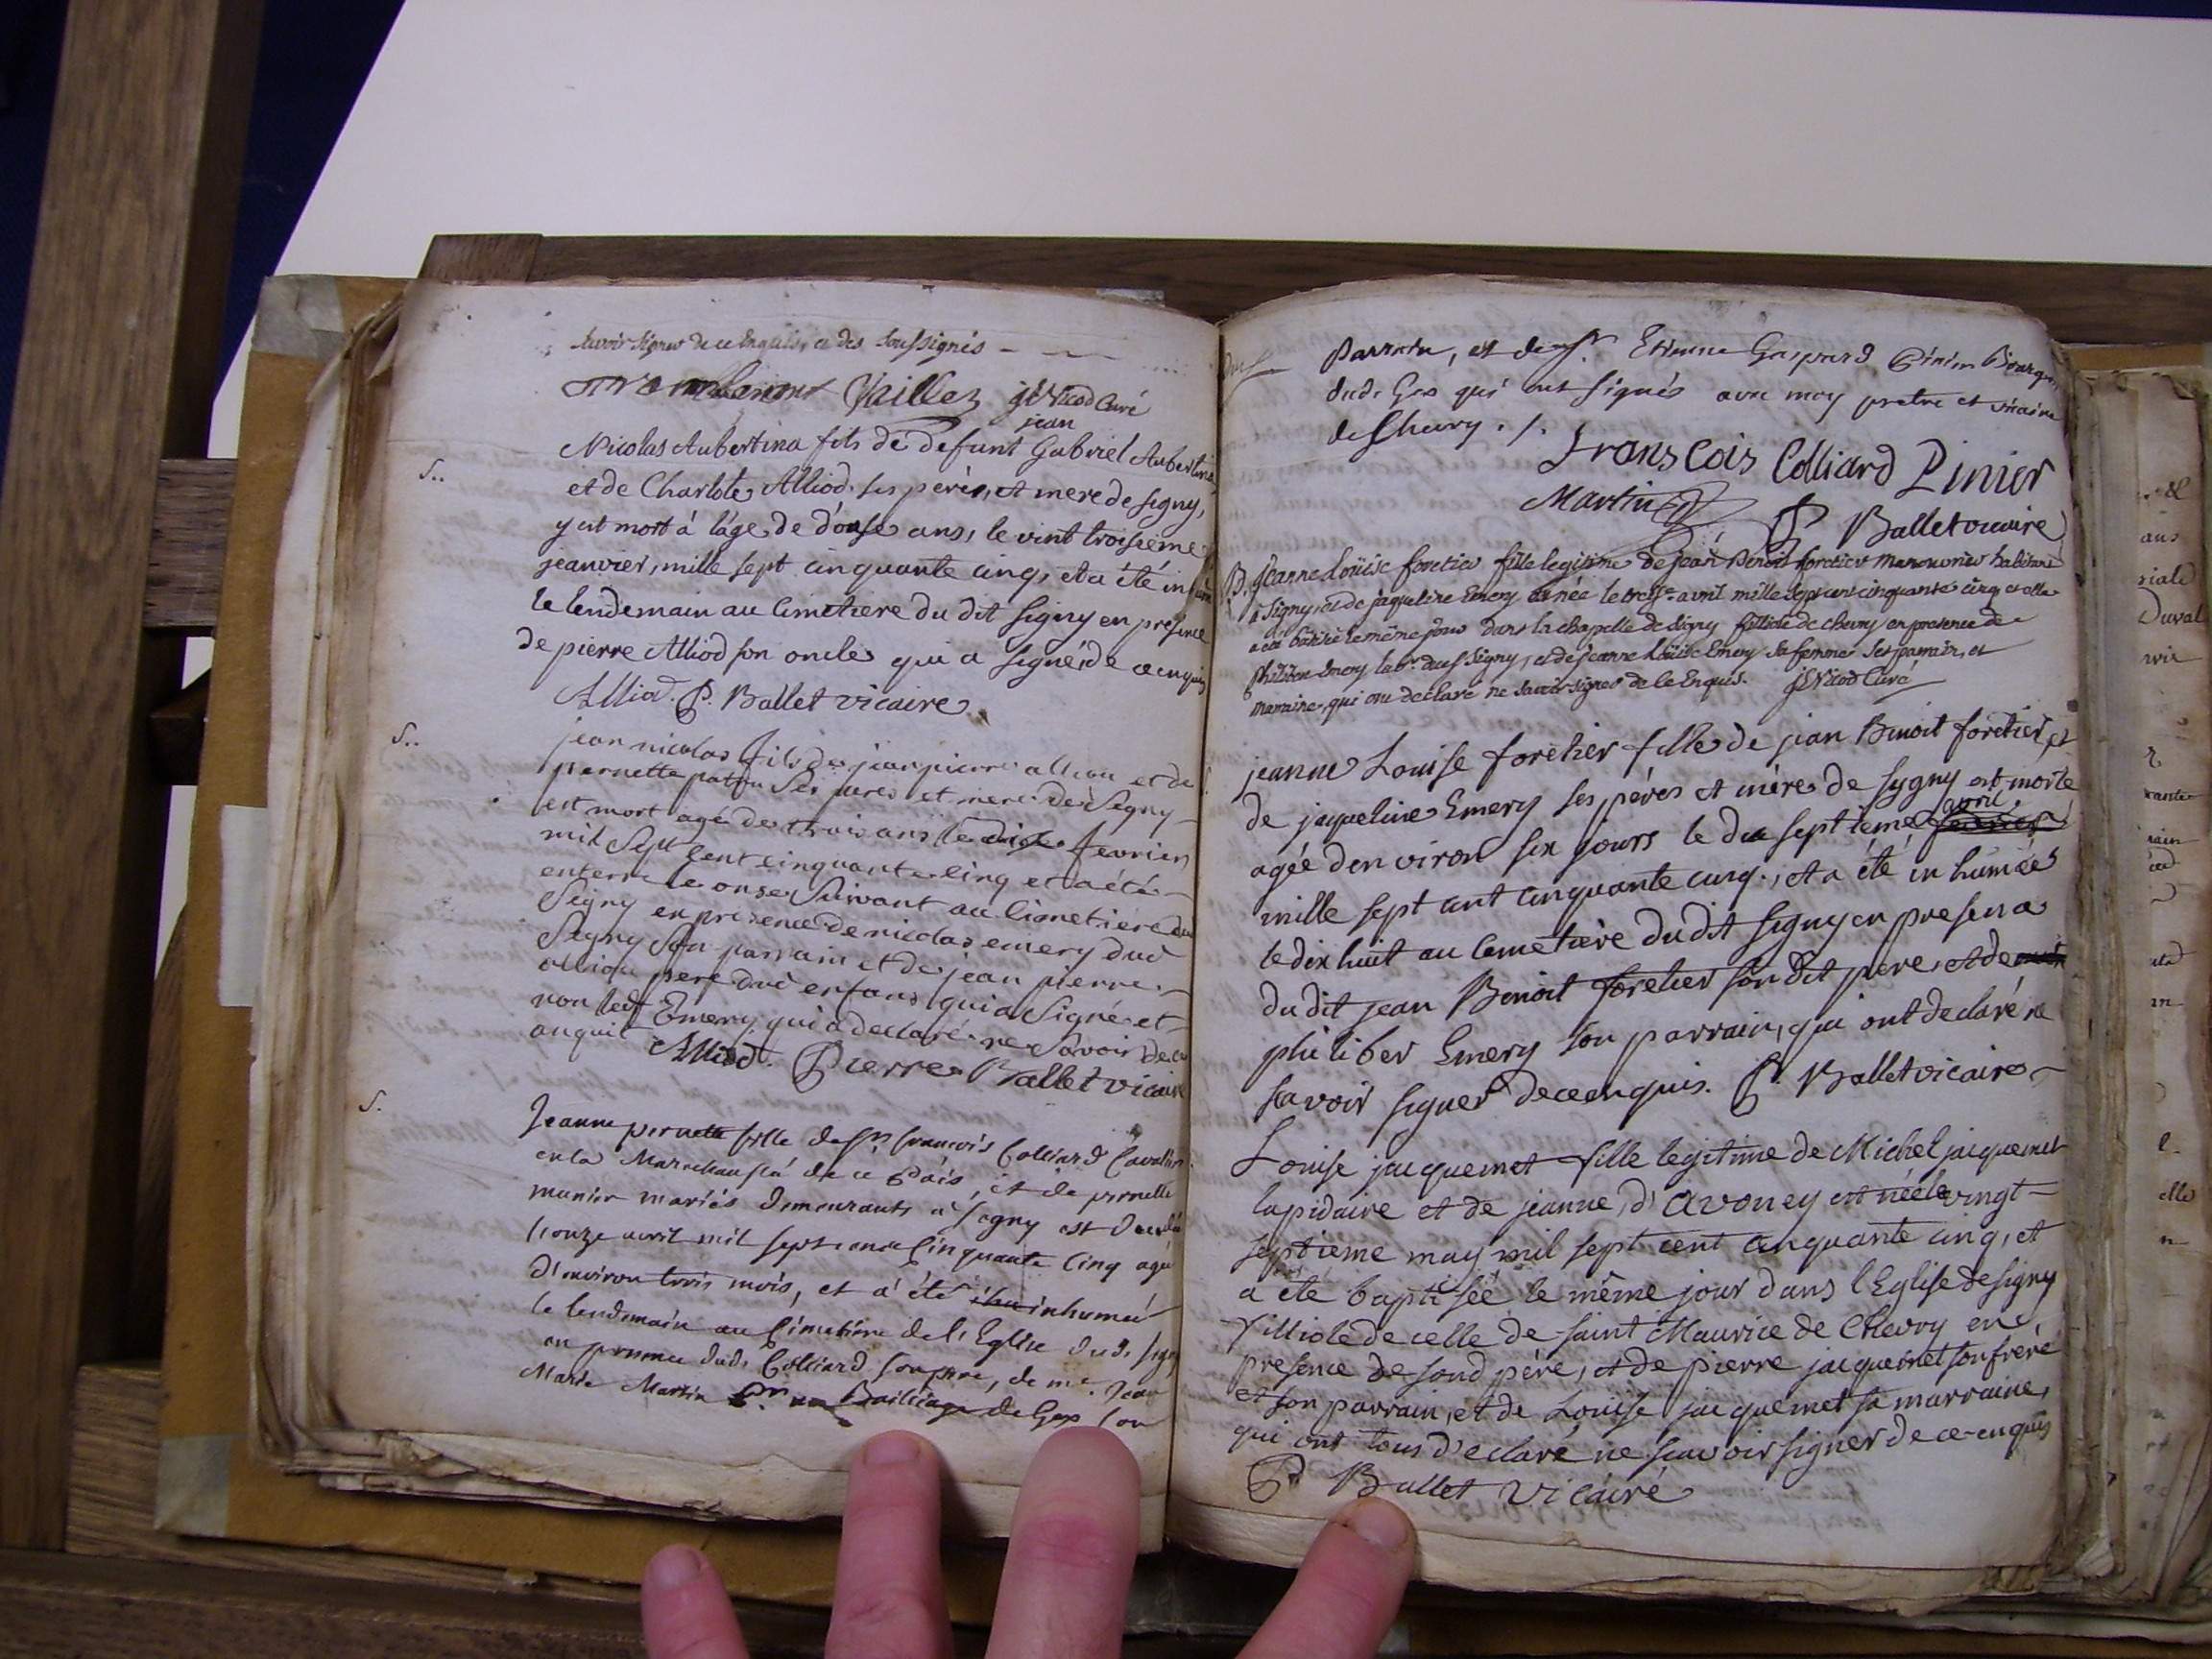 scavoir signer de ce enquis, et des soussignés
Chaillet gl Nicod Curé
jean
Nicolas Aubertina fils de defunt Gabriel Aubertina
et de Charlote Alliod ses pères, et mere de signy,
y est mort à l'âge de d'ouse ans, le vint troisieme
jeanvier, mille sept cinquante cinq, et a été inhumé
le lendemain au Cimetiere du dit signy en presence
de pierre Alliod son oncle qui a signé de ce enquis
Alliod. P. Ballet vicaire
S..
jean nicolas fils de jean pierre alliou et de
pernette patou ses peres et mere de Segny
est mort agé de trois ans le dix fevrier
mil Sept Cent cinquante cinq et a été
enterré le onse Suivant au Cimetiere du
Signy en presence de nicolas emery dud
Segny son parrain et de jean pierre
alliou pere dud enfans qui a Signé et
non led Emery qui a declaré ne Savoir de ce
enquit Alliod. Pierre Ballet vicaire
S..
Jeanne pernette fille de sr francois Colliard Cavalier
en la Marechaussée de ce Païs, et de pernette
munier mariés demeurants à Segny est decedée
l'onze avril mil sept cent Cinquante Cinq agée
d'environ trois mois, et a été inhumée
le lendemain au Cimetière de l'Eglise dud. Segny
en presence dud. Colliard son pere, de me. Jean
Marie Martin Pr. au Bailliage de Gex son
S.
Parrain, et de sr. Etienne Gaspard Pinier Bourgeois
dud. Gex qui ont signés avec moy pretre et vicaire
de Chevry ./.
Francois Colliard Pinier
Martin P Ballet vicaire
B. Jeanne Loüise foretier fille legitime de jean Benoit foretier manouvrier habitant
à Signy, et de jaqueline Emery est née le treise avril mille sept cent cinquante cinq et elle
a été batisée le même jour dans la chapelle de Signy filliole de chevry en presence de
Philibert Emery labr. dud Signy, et de jeanne Loüise Emery Sa femme Ses parrain, et
marraine, qui ont declaré ne Savoir signer de ce Enquis. gl Nicod Curé
jeanne Louise foretier fille de jean Benoit foretier, et
de jaqueline Emery ses pères et mère de sygny est morte
agée d'environ six jours le dix sept ieme avril
mille sept cent cinquante cinq, et a été in humée
le dix huit au cemetiere du dit signy en presence
du dit jean Benoit foretier son dit père et de
philiber Emery son parrain, qui ont declaré ne
scavoir signer de ce enquis. P. Ballet vicaire
Louise jacquemet fille legitime de Michel jacquemet
lapidaire et de jeanne d'Avoney est née le vingt
septieme may mil sept cent cinquante cinq, et
a été baptisée le même jour dans l'Eglise de signy
filliole de celle de saint Maurice de Chevry en
presence de son d père, et de pierre jacquemet son frère
et son parrain, et de Louise jacquemet sa marraine,
qui ont tous d'eclaré ne scavoir signer de ce enquis
P Ballet vicaire